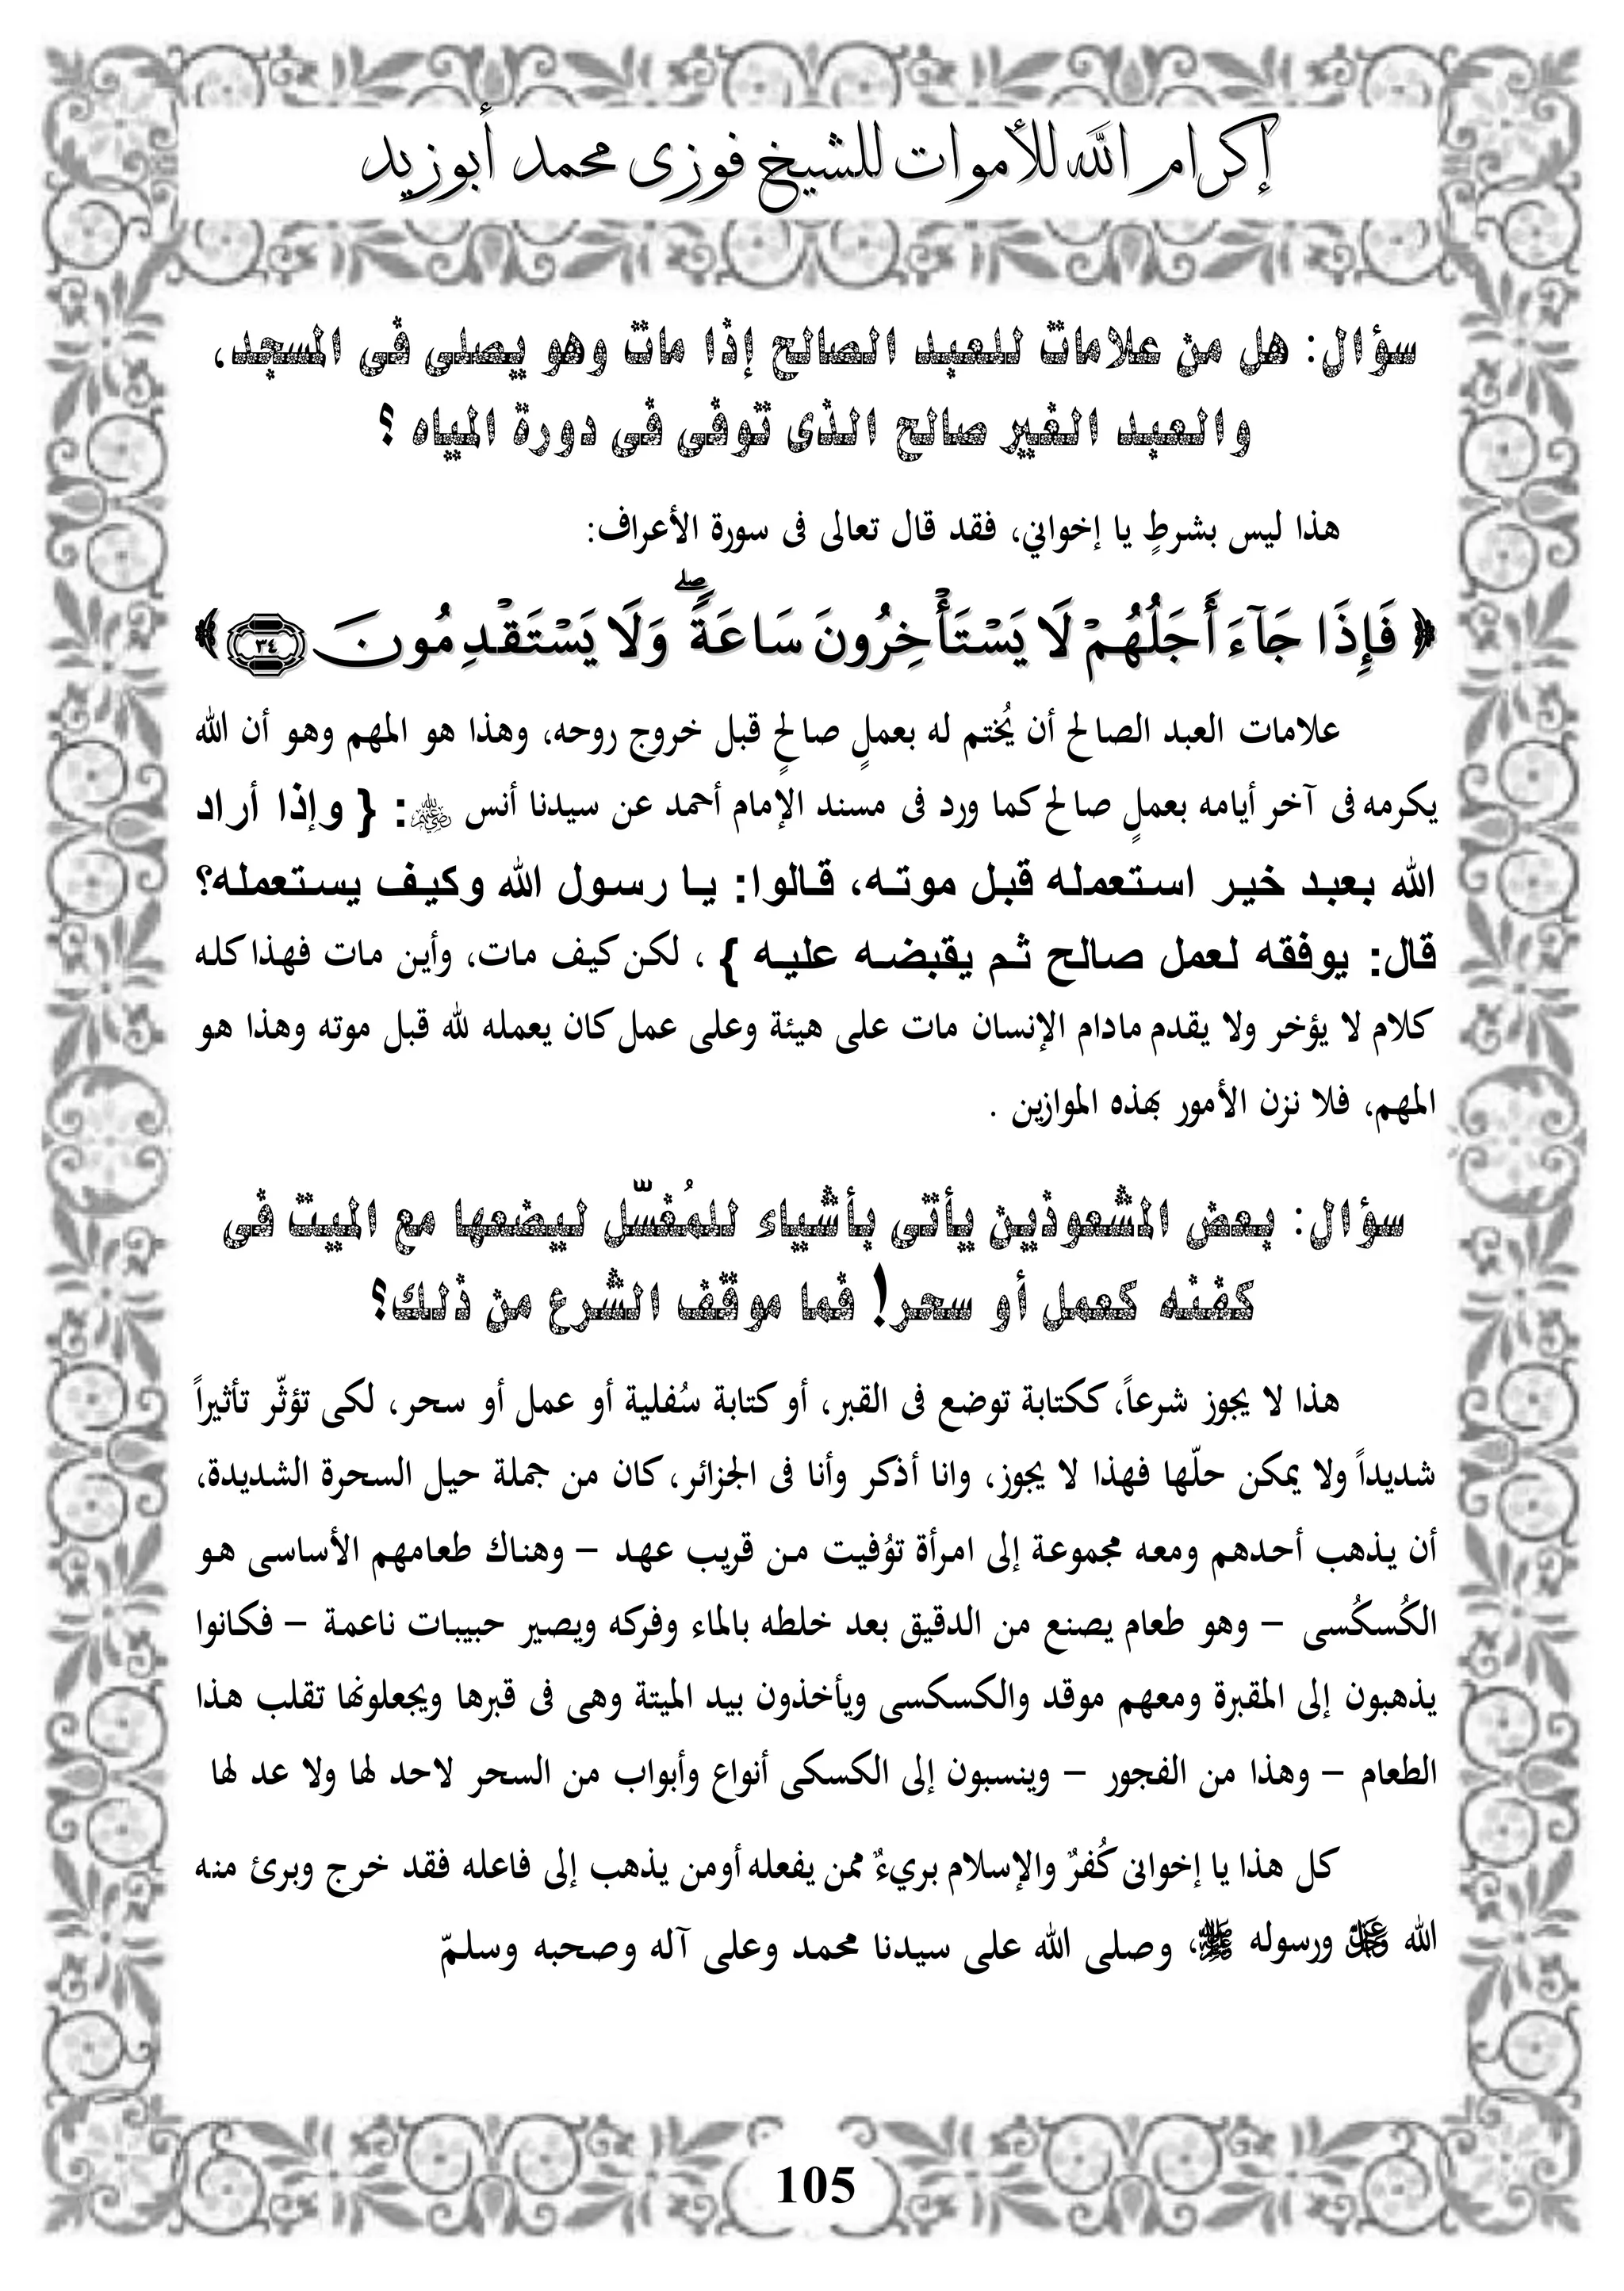 إكرام الله للأموات للشيخ فوزى محمد أبوزيد
سؤال: هل من علامات للعبد الصالح إذا مات وهو يصلى فى المسجد،
والعبد الغير صالح الذى توفى فى دورة المياه ؟
هذا ليس بشرطٍ يا إخواني، فقد قال تعالى فى سورة الأعراف:
﴿ فَإِذَا جَآءَ أَجَلُهُمْ لَا يَسْتَأْخِرُونَ سَاعَةً ۖ وَلَا يَسْتَقْدِمُونَ ٣٤ ﴾
علامات العبد الصالح أن يُختم له بعملٍ صالحٍ قبل خروج روحه، وهذا هو المهم وهو أن الله
يكرمه فى آخر أيامه بعملٍ صالح كما ورد فى مسند الإمام أحمد عن سيدنا أنس رضي الله عنه: { وإذا أراد
الله بعبد خير استعمله قبل موته، قالوا: يا رسول الله وكيف يستعمله؟
قال: يوفقه لعمل صالح ثم يقبضه عليه } ، لكن كيف مات، وأين مات فهذا كله
كلام لا يؤخر ولا يقدم مادام الإنسان مات على هيئة وعلى عمل كان يعمله لله قبل موته وهذا هو
المهم، فلا نزن الأمور بهذه الموازين .
سؤال: بعض المشعوذين يأتى بأشياء للمُغسّل ليضعها مع الميت فى
كفنه كعمل أو سحر! فما موقف الشرع من ذلك؟
هذا لا يجوز شرعاً، ككتابة توضع فى القبر، أو كتابة سُفلية أو عمل أو سحر، لكى تؤثّر تأثيراً
شديداً ولا يمكن حلّها فهذا لا يجوز، وانا أذكر وأنا فى الجزائر، كان من جملة حيل السحرة الشديدة،
أن يذهب أحدهم ومعه مجموعة إلى امرأة تؤُفيت من قريب عهد – وهناك طعامهم الأساسى هو
الكُسكُسى – وهو طعام يصنع من الدقيق بعد خلطه بالماء وفركه ويصير حبيبات ناعمة – فكانوا
يذهبون إلى المقبرة ومعهم موقد والكسكسى ويأخذون بيد الميتة وهى فى قبرها ويجعلونها تقلب هذا
الطعام – وهذا من الفجور – وينسبون إلى الكسكى أنواع وأبواب من السحر لاحد لها ولا عد لها
كل هذا يا إخوانى كُفرٌ والإسلام بريءٌ ممن يفعله أومن يذهب إلى فاعله فقد خرج وبرئ منه
الله عز وجل ورسوله ﷺ، وصلى الله على سيدنا محمد وعلى آله وصحبه وسلمّ
105